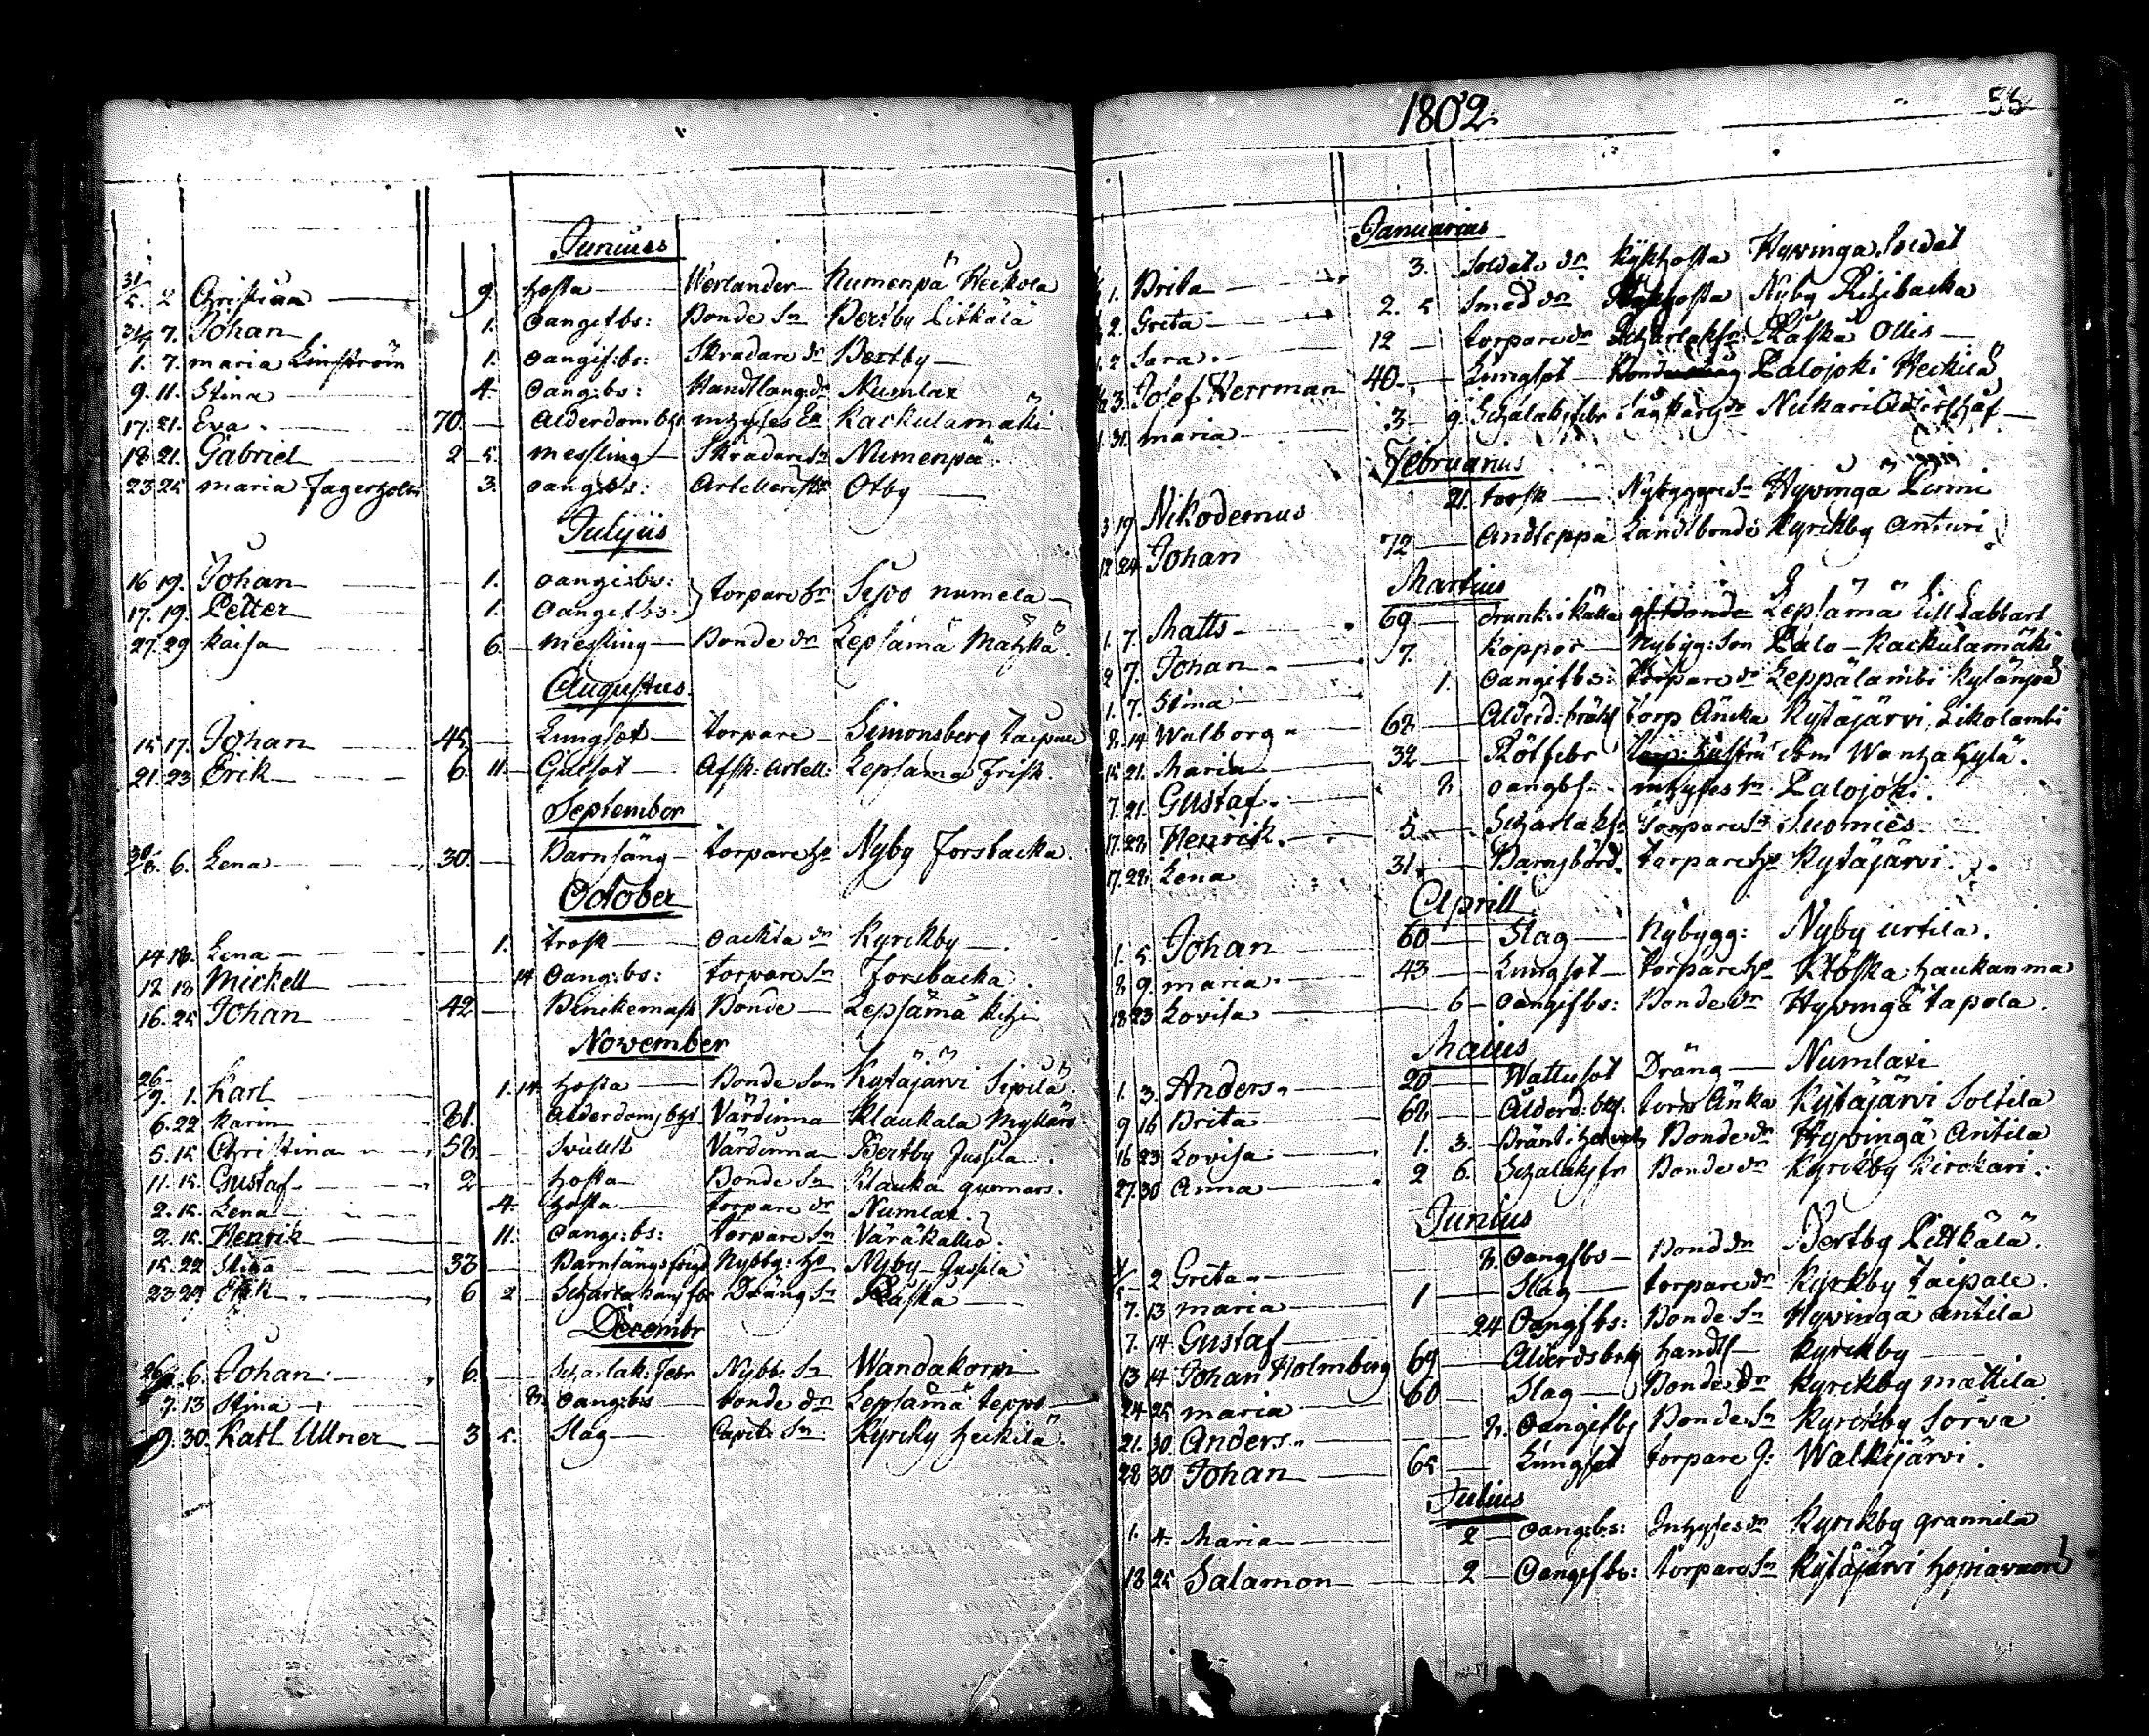 Junius
31/5. 2 Christina — 9. hosta — Werlander Numenpä Heikola
31/5. 7. Johan 1. oangifbs: Bonde Sn Bertby Pitkälä
1. 7. maria Linström 1. oangif:bs: Skradare dr Bertby —
9. 11. Stina — 4. oang:bs: Handtlang:dr Numlax
17. 21. Eva. 70. — Alderdom mhyses Ea Kackulamäki
18. 21. Gabriel 2 5. messling — Skradare Sn Numenpä
23 25 maria Fagerholm 3. oang:bs: Otby —
Julyus
16 19. Johan — 1. oangif:bs: torpare Sr Sejoo numela —
17. 19. Petter 1. oangifbs:
27. 29 Kaisa 6 — messling — Bonde dr Lepsämä Mätzkä.
Augustus.
15. 17. Johan — 45. — Lungsot — torpare — Simonsberg Taipale
21. 23 Erik — 6 11 — Gulsot — Afsk. Artell: Lepsamä Frisk.
September
30/8. 6. Lena — 30. — Barnsäng — torpare ho Nyby Forsbacka.
October
14 18. Lena — 1. trosk — Kyrckby —.
12 18 Mickell — 14 oang:bs: torpare Sn forsbacka.
16. 25 Johan — 42 — Binikemask Bonde — Lepsämä Kihi
November
26/9. 1. Karl — 1. 14 hosta — Bonde Son Kytäjärvi Sipilä.
6. 22 Karin — 81. Alderdom, Värdinna Klaukala Mylläri
5. 15 Christina 58. Svullt Värdinna Bertby Jussila.
11. 15. Gustaf. — 2 — hosta — Bonde Sn Klauka gunnars.
2. 15. Lena — 4. hosta — torpare dr Numlax.
2. 15. Henrik — 11. oangi:bs: torpare Sn Väräkallio.
15. 22 Stina — 38 — Nybbg: ho Nyby Jussila
23 29 Erik — 6 2 — Dräng Sn Råska —
Decembr
26. 6. Johan — 6. — Scharlak: febr Nybb: Sn Wandakorvi
7. 13 Stina — 8. oang:bs bonde dr Lepsämä teppo —
9. 30. Karl Ullner — 3 5. Slag — Capit: Sn Kyrcky heikilä.
1802. 55
Januarius
1. Brita — 3. Soldats dr Kykhosta Hyvinga Soldat
2. Greta — 2. 5 Smed dr Kykhosta Nyby Pitzibacka
1. 2 Sara. — 12 — torpare dr Råska Ollis —
3. Josef Herrman 40. — Lungsot — Palojoki Heikilä
1. 31. maria — 3 — 9.
Februarius
3 19 Nikodemus 21. torsk — Nybyggare Sn Hyvingä Permi
12 24 Johan 72 — Andteppa Landbonde Kyrckby anturi
Martius
1. 7. Matts — 69 — Drunk: i källa Lepsämä Lill Labbart
2 7. Johan. — 7. Koppor — Nybyg: Son Palo — Kackulamäki
1. 7. Stina — 1. oangifbs: torpare dr Leppälambi Kytänpä
8. 14 Walborg — 68 — Alderd:bräkl torp Äncka Kytäjärvi, Likolambi
15 21. Maria — 32 — Rötfebr Wantzakylä.
7. 21. Gustaf. — 8 oangbf: — mhyses Sn Palojoki.
17. 28 Henrik. — 5. — Scharlakf: torpare Sn Suomies —
17. 28 Lena 31. — Barnsbörd. torpare ho Kytäjärvi.
Aprill
1. 5. Johan 60 — Slag — Nybygg: Nyby urtila.
8. 9. maria. — 43 — Lungsot — torpare ho Råska haukanma
18 23 Lovisa — 6 — oangifbs: Bonde dr Hyvingä tapola.
Maius
1. 3. Anders. 20 — Wattusot Dräng — Numlaxi
9 16 Brita — 68 — Alderd: torp Änka Kytäjärvi Soltila
16 23 Lovisa — 1. 3. — Bonde dr Hyvingä Antila
27. 30 Anna — 2 6. Bonde dr Kyrckby Kirckari.
Junius
31/5 2 Greta. — 8. oangfbs — Bond dr Bertby Pitkälä.
7. 13 maria — 1 — Slag — torpare dr Kyrkby Taipale.
7. 14 Gustaf — 24 Oangfbs: Bonde Sn Hyvinga antila
13 14 Johan Holmberg 69 — handtl — Kyrckby —
24 25 maria 60 — Slag — Bonde Kyrckby mattila
21. 30. Anders. — 8. Oangifbs Bonde Sn Kyrckby Sorva
28 30 Johan — 65 — Lungsot torpare g: Walkijärvi.
Julius
1. 4. Maria — 2 — oang:bs: Inhyses dr Kyrckby grannila
18 25 Salamon — 2 — Oangifbs: torpare Sn Kytäjärvi hopiavuori